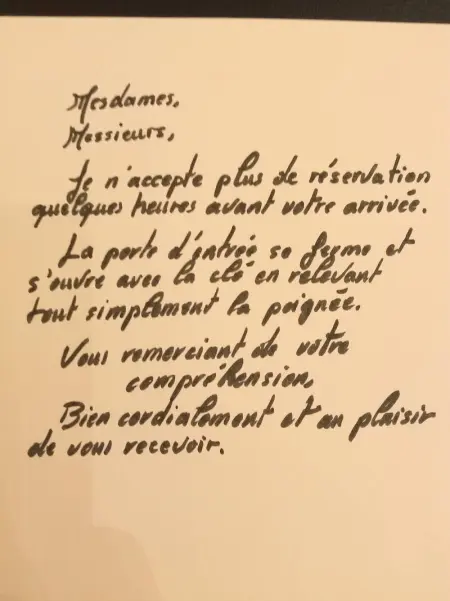 Mesdames,
Messieurs,
Je n'accepte plus de réservation
quelques heures avant votre arrivée.
La porte d'entrée se ferme et
s'ouvre avec la clé en relevant
tout simplement la poignée.
Vous remerciant de votre
compréhension,
Bien cordialement et au plaisir
de vous recevoir.